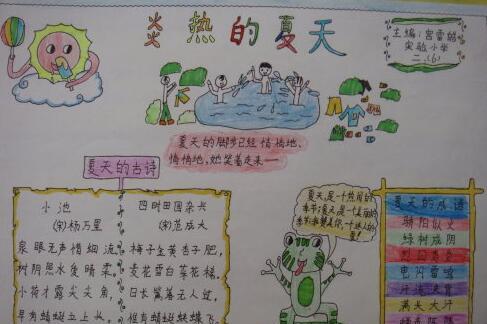 炎热的夏天
主编:宫雷
实验小学
二.(6)
夏天的脚步已经悄悄地、
悄悄地,她笑着走来一
夏天的古诗
小池
(宋)杨万里
泉眼无声惜细流,
树阴照水爱晴柔。
小荷才露尖尖角,
早有蜻蜓立上头
四时田园杂兴
(宋)范成大
梅子金黄杏子肥,
麦花雪白菜花稀,
日长篱落无人过,
有蜻蜓蛱蝶飞
夏天,是一个热闹的
季节;夏天,是一个美丽的
夏天的成语
骄阳似火
绿树成阴
烈日炎炎
电闪雷鸣
汗流浃背
满头大汗